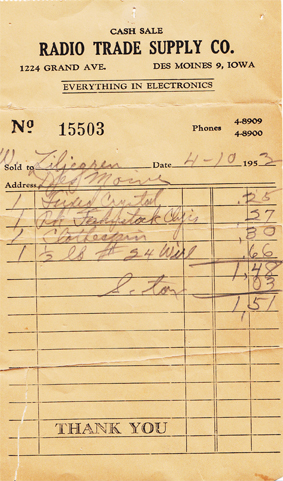 CASH SALE
RADIO TRADE SUPPLY CO.
1224 GRAND AVE. DES MOINES 9, IOWA
EVERYTHING IN ELECTRONICS
No 15503 Phones 4-8909
4-8900
Sold to Date 4-10 195
Address Des Moine
1 Fixed Crystal .25
1 Pk Clips .27
1 .30
1 ½ lb # 24 Wire .66
1,48
S. tax 03
1,51
THANK YOU